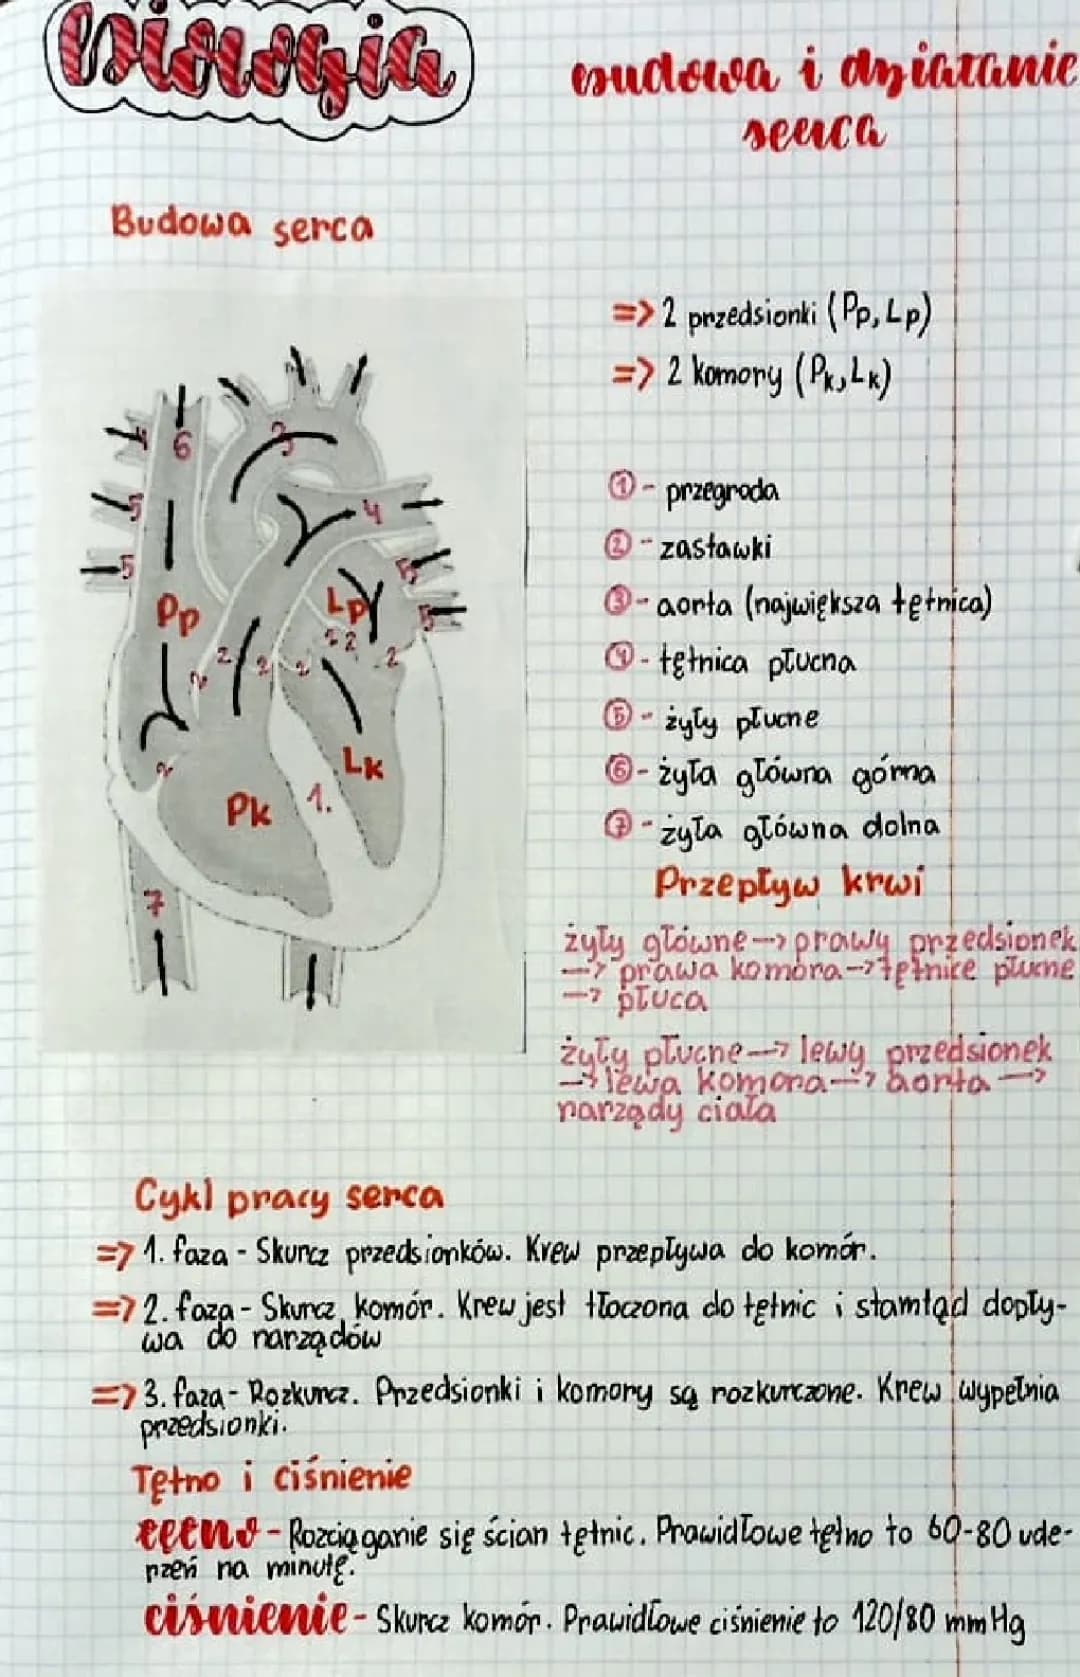 Biologia
budowa i działanie
serca
Budowa serca
=> 2 przedsionki (Pp, Lp)
=> 2 komory (Pk, Lk)
① - przegroda
② - zastawki
③ - aorta (największa tętnica)
④ - tętnica płucna
⑤ - żyły płucne
⑥ - żyła główna górna
⑦ - żyła główna dolna
6
3
4
4
5
5
5
5
Pp
Lp
2
2
2
2
2
2
2
2
Lk
Pk
1.
7
Przepływ krwi
żyły główne -> prawy przedsionek
-> prawa komora -> tętnice płucne
-> płuca
żyły płucne -> lewy przedsionek
-> lewa komora -> aorta ->
narządy ciała
Cykl pracy serca
=> 1. faza - Skurcz przedsionków. Krew przepływa do komór.
=> 2. faza - Skurcz komór. Krew jest tłoczona do tętnic i stamtąd dopły-
wa do narządów
=> 3. faza - Rozkurcz. Przedsionki i komory są rozkurczone. Krew wypełnia
przedsionki.
Tętno i ciśnienie
tętno - Rozciąganie się ścian tętnic. Prawidłowe tętno to 60-80 ude-
rzeń na minutę.
ciśnienie - Skurcz komór. Prawidłowe ciśnienie to 120/80 mmHg